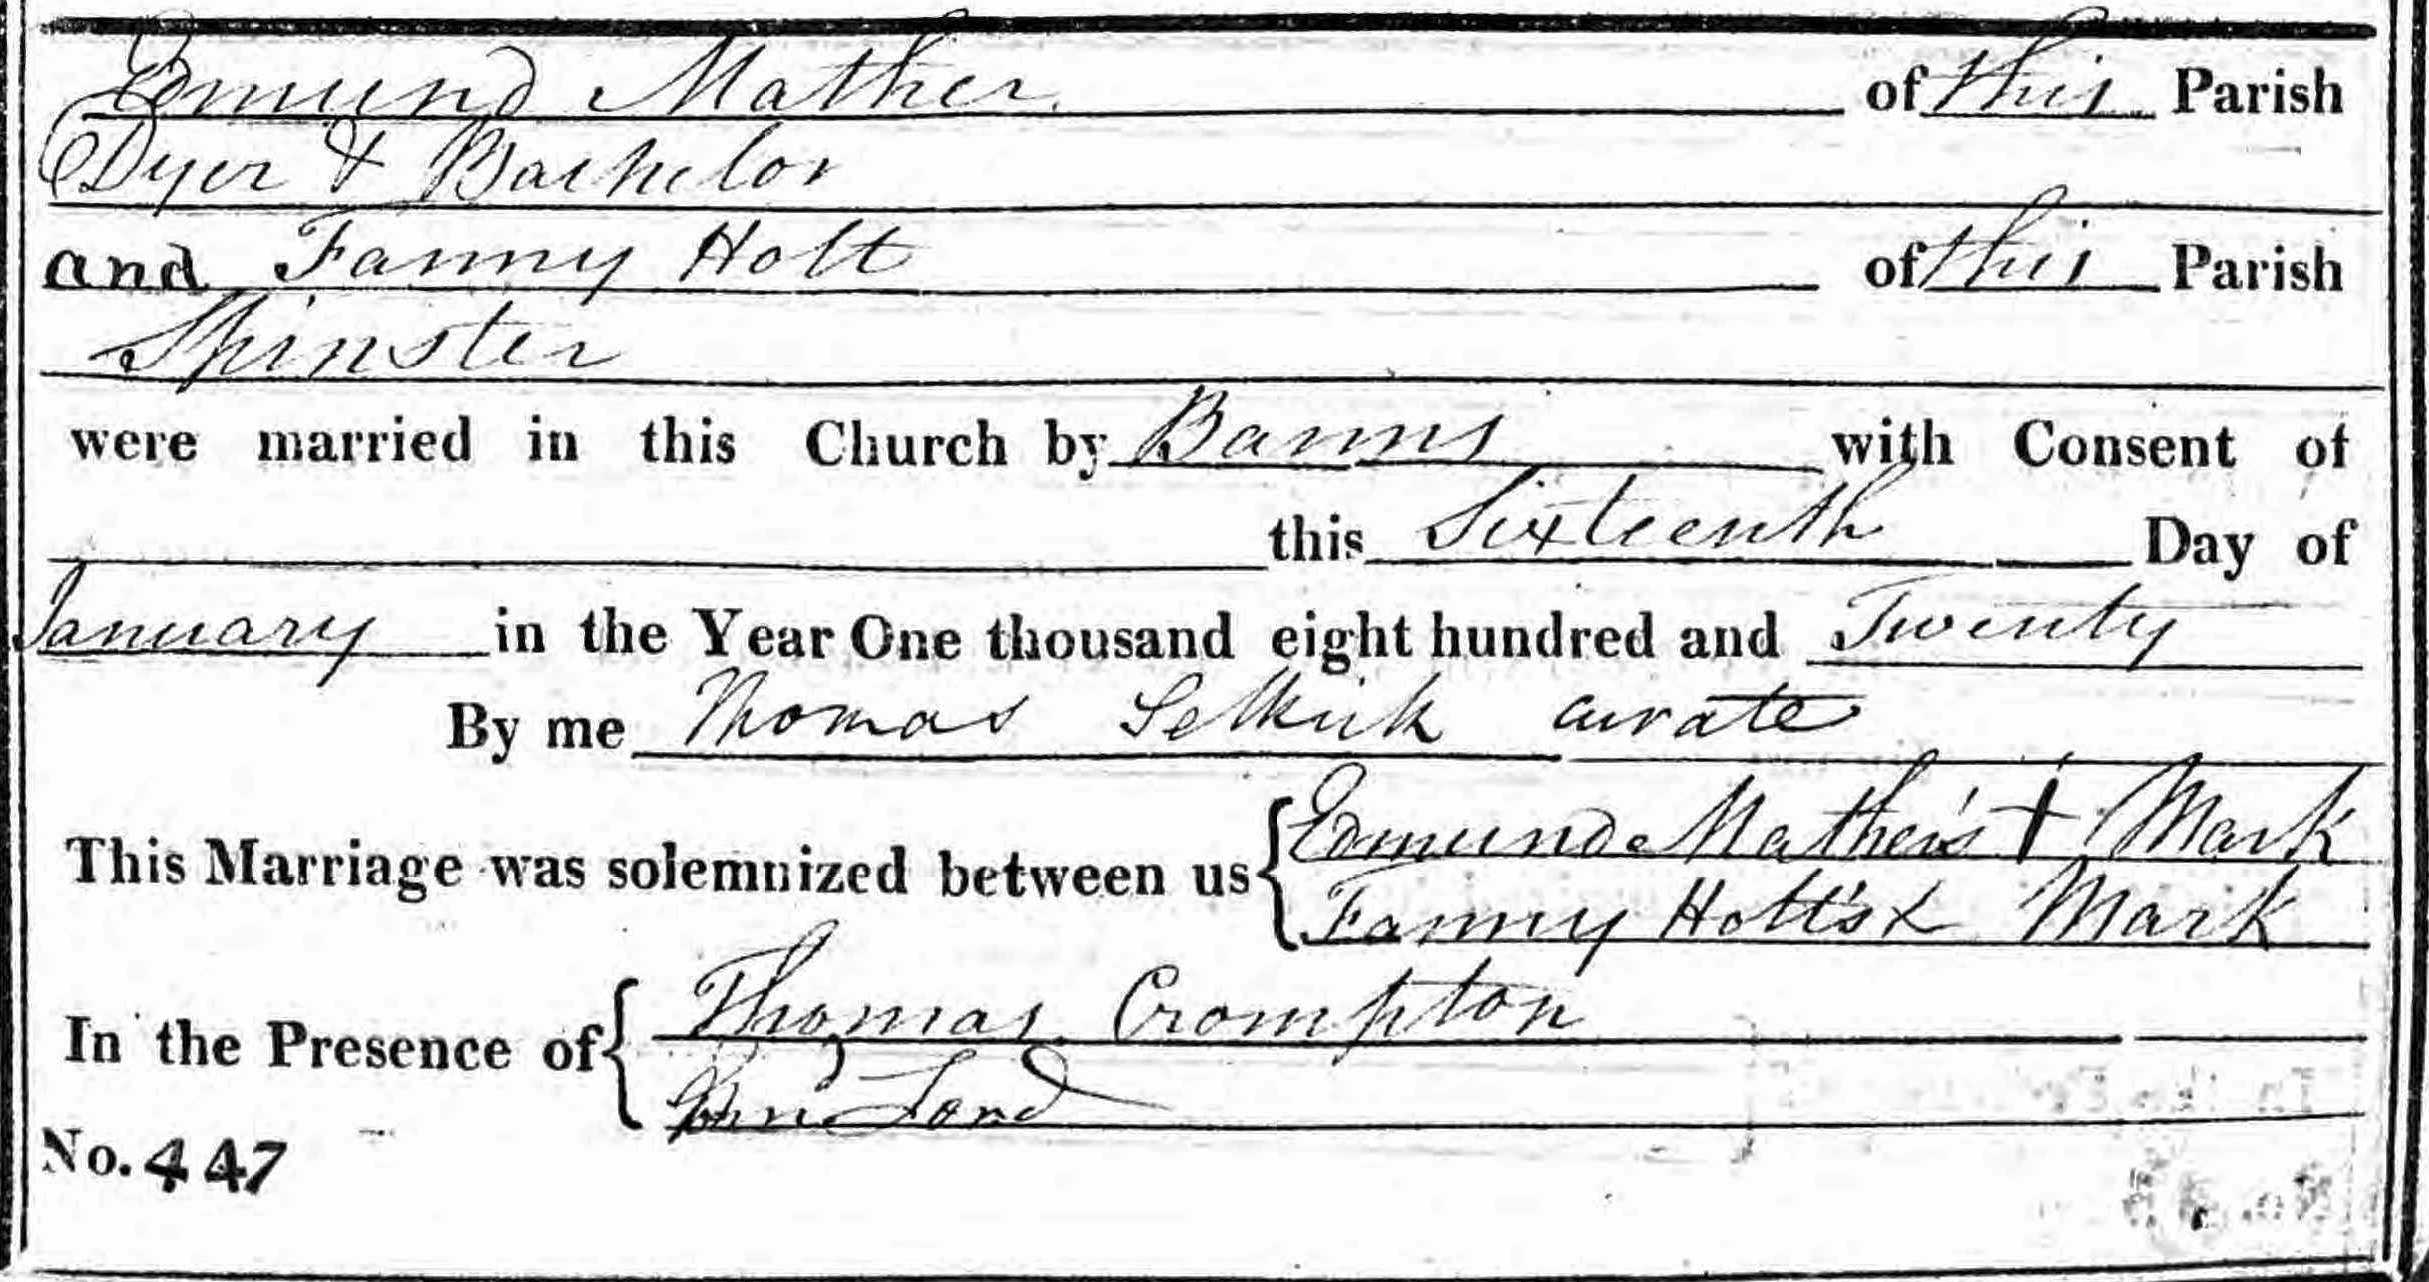 Edmund Mather of this Parish
Dyer & Bachelor
and Fanny Holt of this Parish
Spinster
were married in this Church by Banns with Consent of
this Sixteenth Day of
January in the Year One thousand eight hundred and Twenty
By me Thomas Selkirk curate
This Marriage was solemnized between us { Edmund Mather's + Mark
Fanny Holt's x Mark
In the Presence of { Thomas Crompton
Lord
No. 447